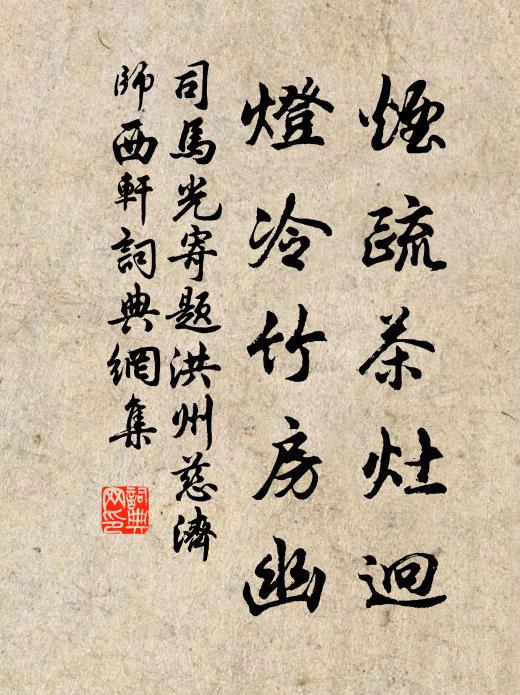 煙疏茶灶迥
燈冷竹房幽
司馬光寄題洪州慈濟
師西軒詞典網集
詞典網印